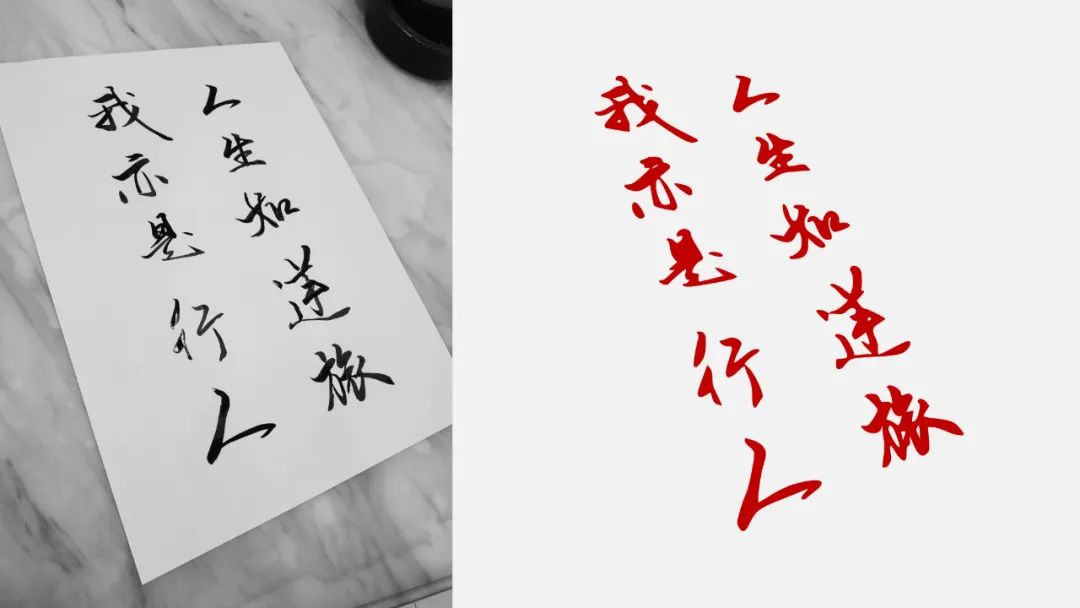 人生如逆旅
我亦是行人
人生如逆旅
我亦是行人